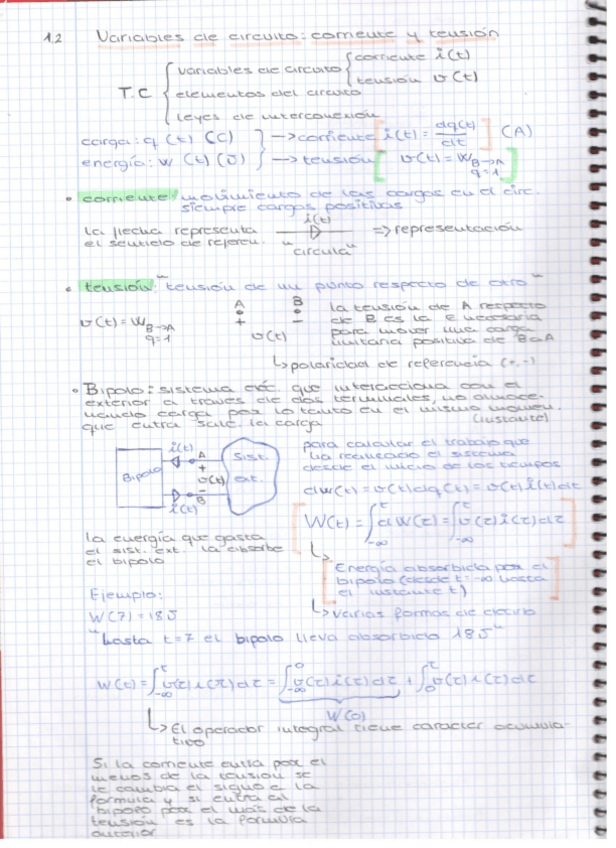 1.2 Variables de circuito: corriente y tensión
T.C { variables de circuito { corriente i(t)
tensión v(t)
elementos del circuito
leyes de interconexión
carga: q(t) (C) } → corriente [ i(t) = dq(t)/dt ] (A)
energía: w(t) (J) } → tensión [ v(t) = W B→A q=1 ]
• corriente: movimiento de las cargas en el circ.
siempre cargas positivas
la flecha representa i(t) ⇒ representación
el sentido de referen. "circula"
• tensión: "tensión de un punto respecto de otro"
A B la tensión de A respecto
v(t) = W B→A q=1 + - de B es la E necesaria
v(t) para mover una carga
unitaria positiva de B a A
↳ polaridad de referencia (+,-)
• Bipolo: sistema eléc. que interacciona con el
exterior a través de dos terminales, no almace-
nando carga por lo tanto en el mismo momen.
que entra sale la carga (instante)
Bipolo i(t) A + v(t) - B i(t) Sist. ext.
para calcular el trabajo que
ha realizado el sistema
desde el inicio de los tiempos
dw(t) = v(t)dq(t) = v(t)i(t)dt
[ W(t) = ∫_{-∞}^{t} dW(τ) = ∫_{-∞}^{t} v(τ)i(τ)dτ ]
la energía que gasta
el sist. ext. la absorbe
el bipolo
↳ [ Energía absorbida por el
bipolo (desde t=-∞ hasta
el instante t) ]
↳ varias formas de decirlo
Ejemplo:
W(7) = 18J
"hasta t=7 el bipolo lleva absorbida 18J"
W(t) = ∫_{-∞}^{t} v(τ)i(τ)dτ = ∫_{-∞}^{0} v(τ)i(τ)dτ + ∫_{0}^{t} v(τ)i(τ)dτ
W(0)
↳ El operador integral tiene caracter acumula-
tivo
Si la corriente entra por el
menos de la tensión se
le cambia el signo a la
formula y si entra al
bipolo por el más de la
tensión es la formula
anterior